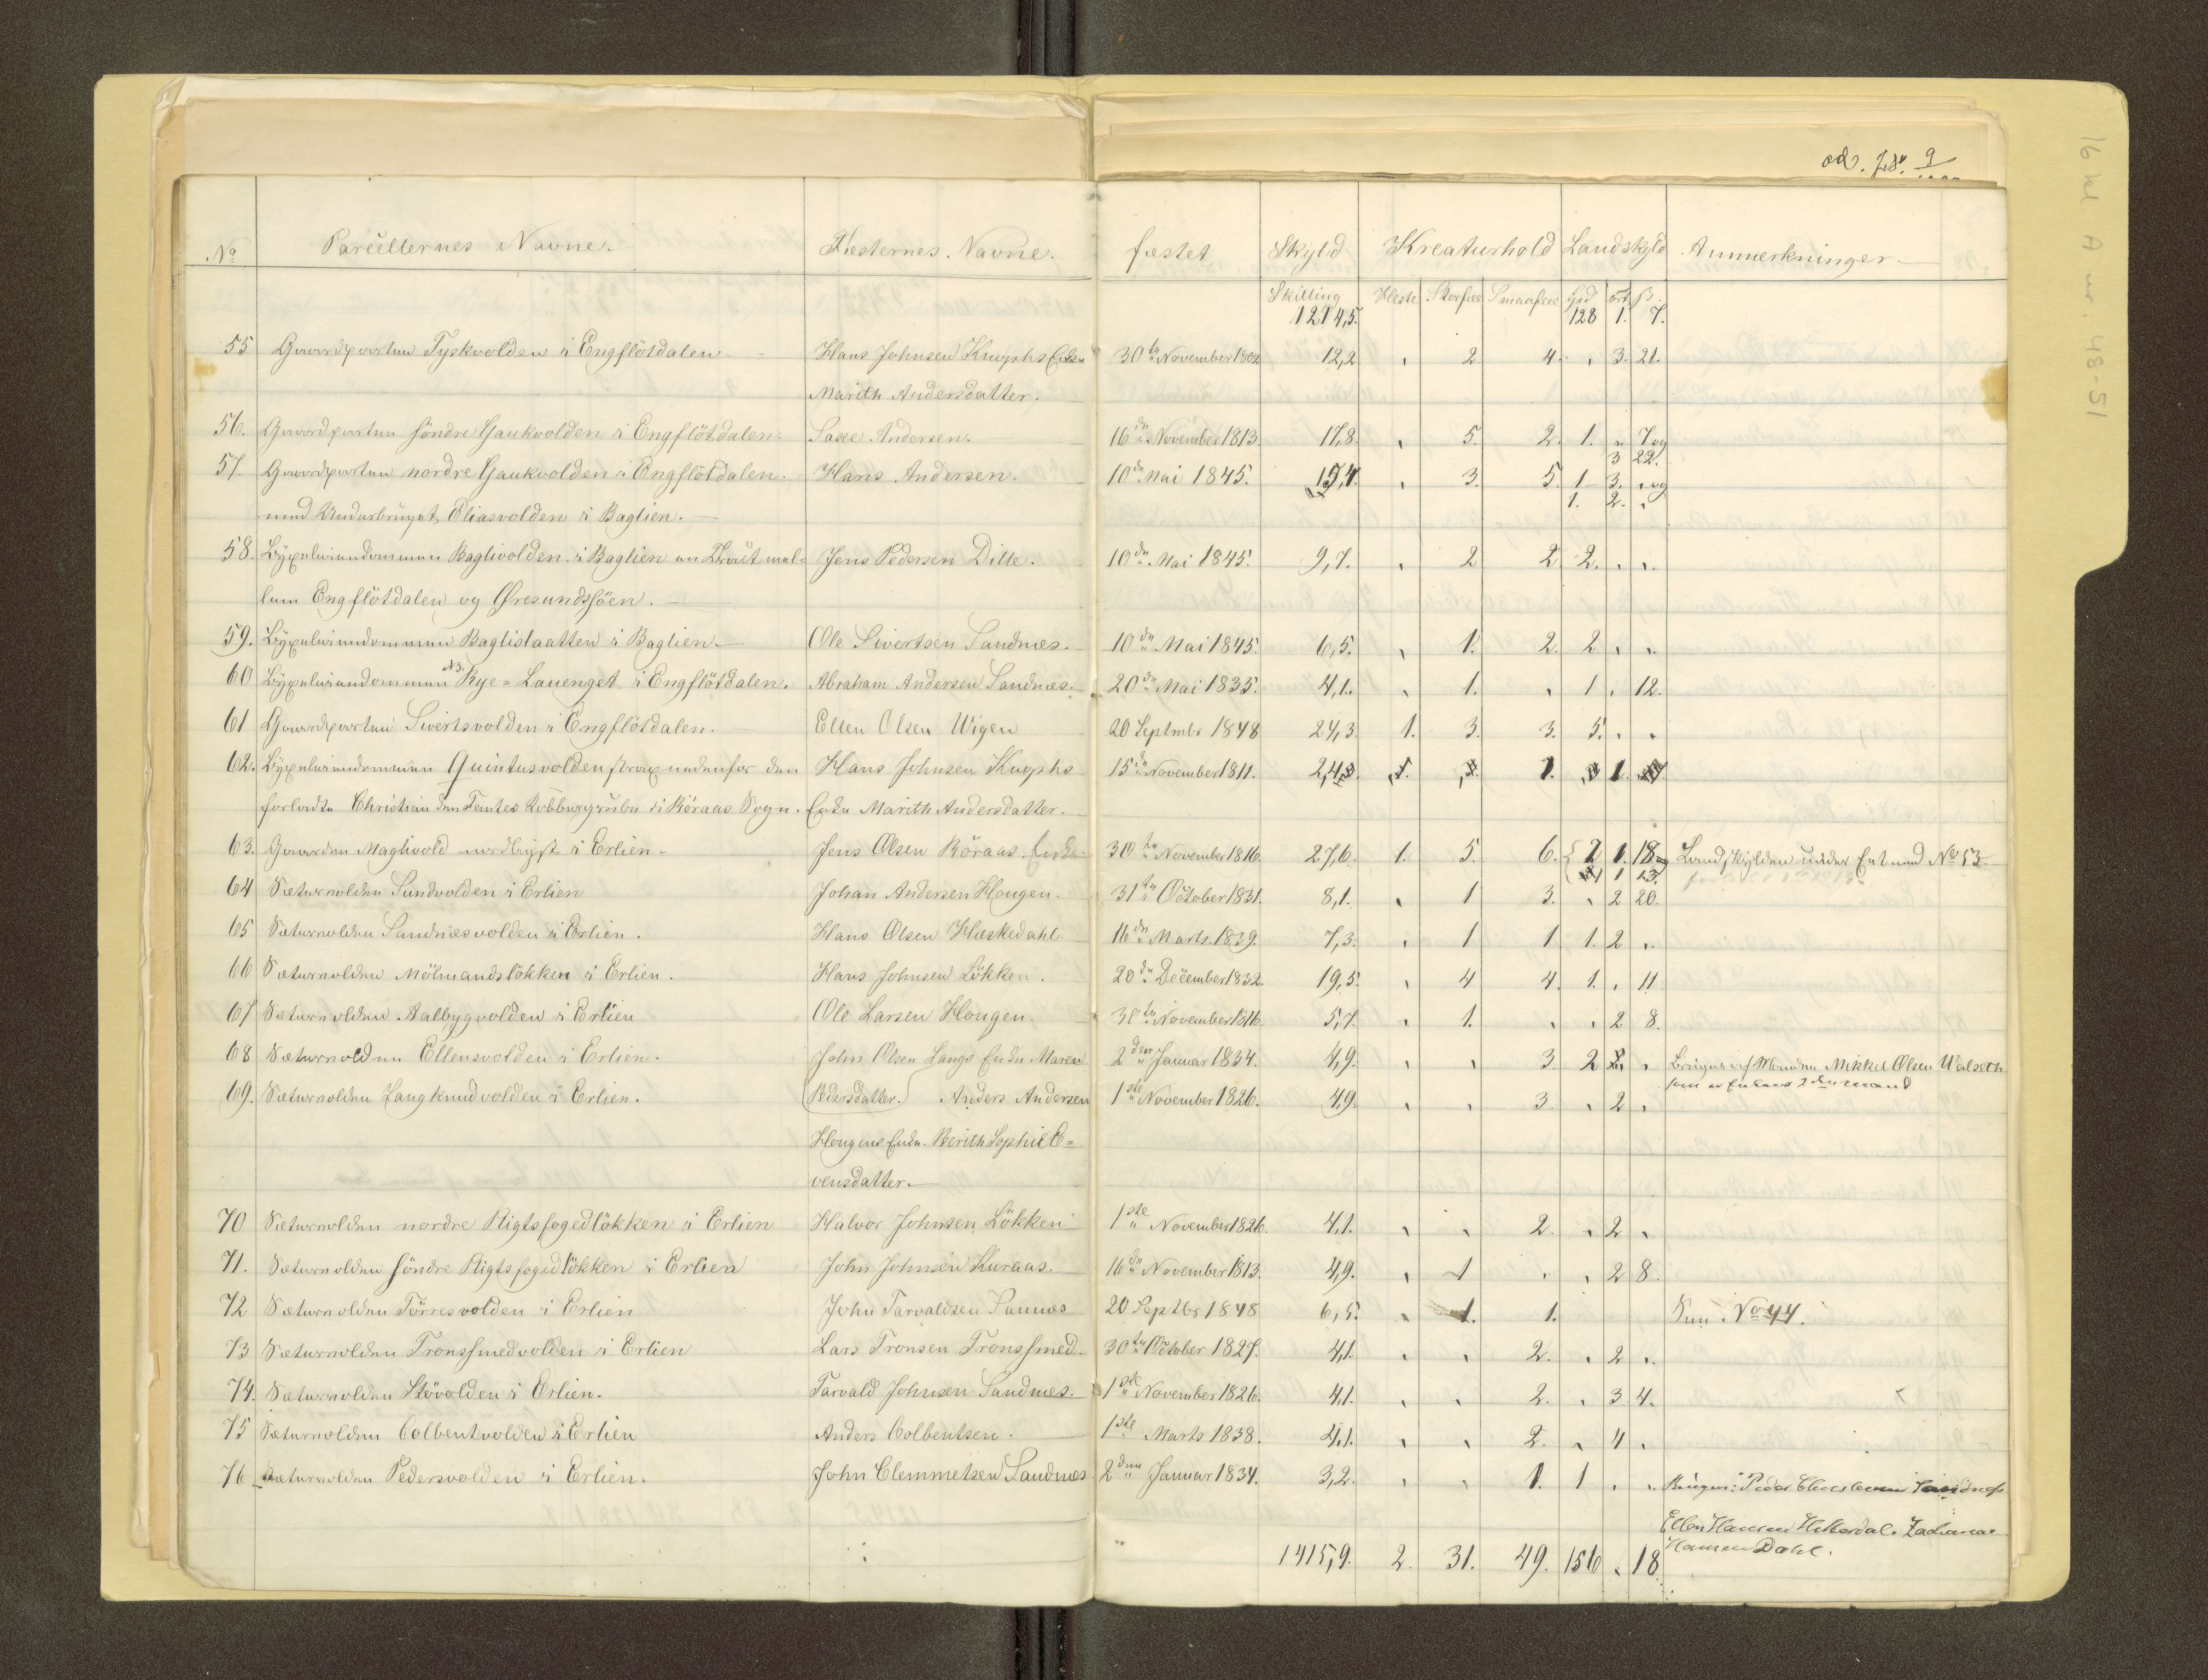 No Parcellernes Navne. Fæsternes Navne. fæstet Skyld Kreaturhold Landskyld Anmerkninger
Skilling Heste Storfee Smaafee Spd ort ß
1214,5. 128 1. 7.
55 Gaardparten Tyskvolden i Engflötdalen Hans Johnsen Knophs Enke 30te November 1802 12,2 " 2 4. " 3. 21.
Marith Andersdatter.
56. Gaardparten söndre Gjaukvolden i Engflötdalen Andersen. 16de November 1813. 17,8. " 5. 2. 1. " 7 og
3 22.
57. Gaardparten nordre Gjaukvolden i Engflötdalen. Hans Andersen. 10de Mai 1845. " 3. 5. 1 3. " og
med Underbruget Eliasvolden i Baglien. 1. 2. "
58. Baglivolden i Baglien en Tract mel= Jens Pedersen Dille. 10de Mai 1845. 9,7. " 2 2 2. " "
lem Engflötdalen og Øresundsjöen.
59. Baglislaatten i Baglien. Ole Sivertsen Sandnæs. 10de Mai 1845. 6,5. " 1. 2. 2 " "
60 Rye=Lauenget i Engflötdalen. Abraham Andersen Sandnæs. 20de Mai 1835. 4,1. " 1. " 1 " 12.
61 Gaardparten Sivertsvolden i Engflötdalen. Ellen Olsen Wigen 20 Septmbr 1848 24,3. 1. 3. 3. 5. " "
62. Quintusvolden strax nedenfor den Hans Johnsen Knophs 15de November 1811. 1. 1.
forladte Christian den Femtes Kobbergrube i Röraas Sogn. Enke Marith Andersdatter.
63. Gaarden Maglivold nordligst i Erlien. Jens Olsen Röraas. Enke 30te November 1816. 27,6. 1. 5. 6. 2 1. 18 og Landskylden under Eet med No 53
1 13.
64 Sætervolden Sundvolden i Erlien Johan Andersen Hougen. 31te October 1831. 8,1. " 1 3. " 2 20.
65 Sætervolden Sundnæsvolden i Erlien. Hans Olsen Hæskedahl 16de Marts 1839. 7,3. " 1 1 1. 2 "
66 Sætervolden Mölmandslökken i Erlien. Hans Johnsen Lökken. 20de December 1832. 19,5. " 4 4. 1. " 11
67 Sætervolden Aalbygvolden i Erlien Ole Larsen Hougen. 30te November 1816. 5,7. " 1. " " 2 8.
68 Sætervolden Ellensvolden i Erlien. John Olsen Langs Enke Maren 2den Januar 1834. 4,9. " " 3. 2 " Bruges af Manden Mikkel Olsen Walseth
som er Enkens 2den Mand
69. Sætervolden Langkundvolden i Erlien. Pedersdatter. Anders Andersen 1ste November 1826. 4,9. " " 3. " 2 "
Hougens Enke. Berith Sophie E=
vensdatter.
70 Sætervolden nordre Rigtsfogedlökken i Erlien Halvor Johnsen Lökken 1ste November 1826. 4,1. " " 2. " 2 "
71. Sætervolden söndre Rigtsfogedlökken i Erlien John Johnsen Kuraas. 16de November 1813. 4,9. " 1 " " 2 8.
72 Sætervolden Törresvolden i Erlien John Tarvaldsen Sunnæs 20 Septbr 1848 6,5. " 1. 1. No 44.
73 Sætervolden Tronssmedvolden i Erlien Lars Tronsen Tronssmed. 30te October 1827. 4,1. " " 2. " 2 "
74. Sætervolden Stövolden i Erlien. Tarvald Johnsen Sandnæs. 1ste November 1826. 4,1. " " 2. " 3 4.
75 Sætervolden Colbentvolden i Erlien Anders Colbentsen. 1ste Marts 1838. 4,1. " " 2. " 4 "
76 Sætervolden Pedersvolden i Erlien. John Clemmetsen Sandnæs 2den Januar 1834. 3,2. " " 1. 1 " " Bruger: Peder
Ellen Hansen Zacharias
Hansen Dahl.
1415,9. 2. 31. 49. 156 " 18.
16 kl A nr. 48-51